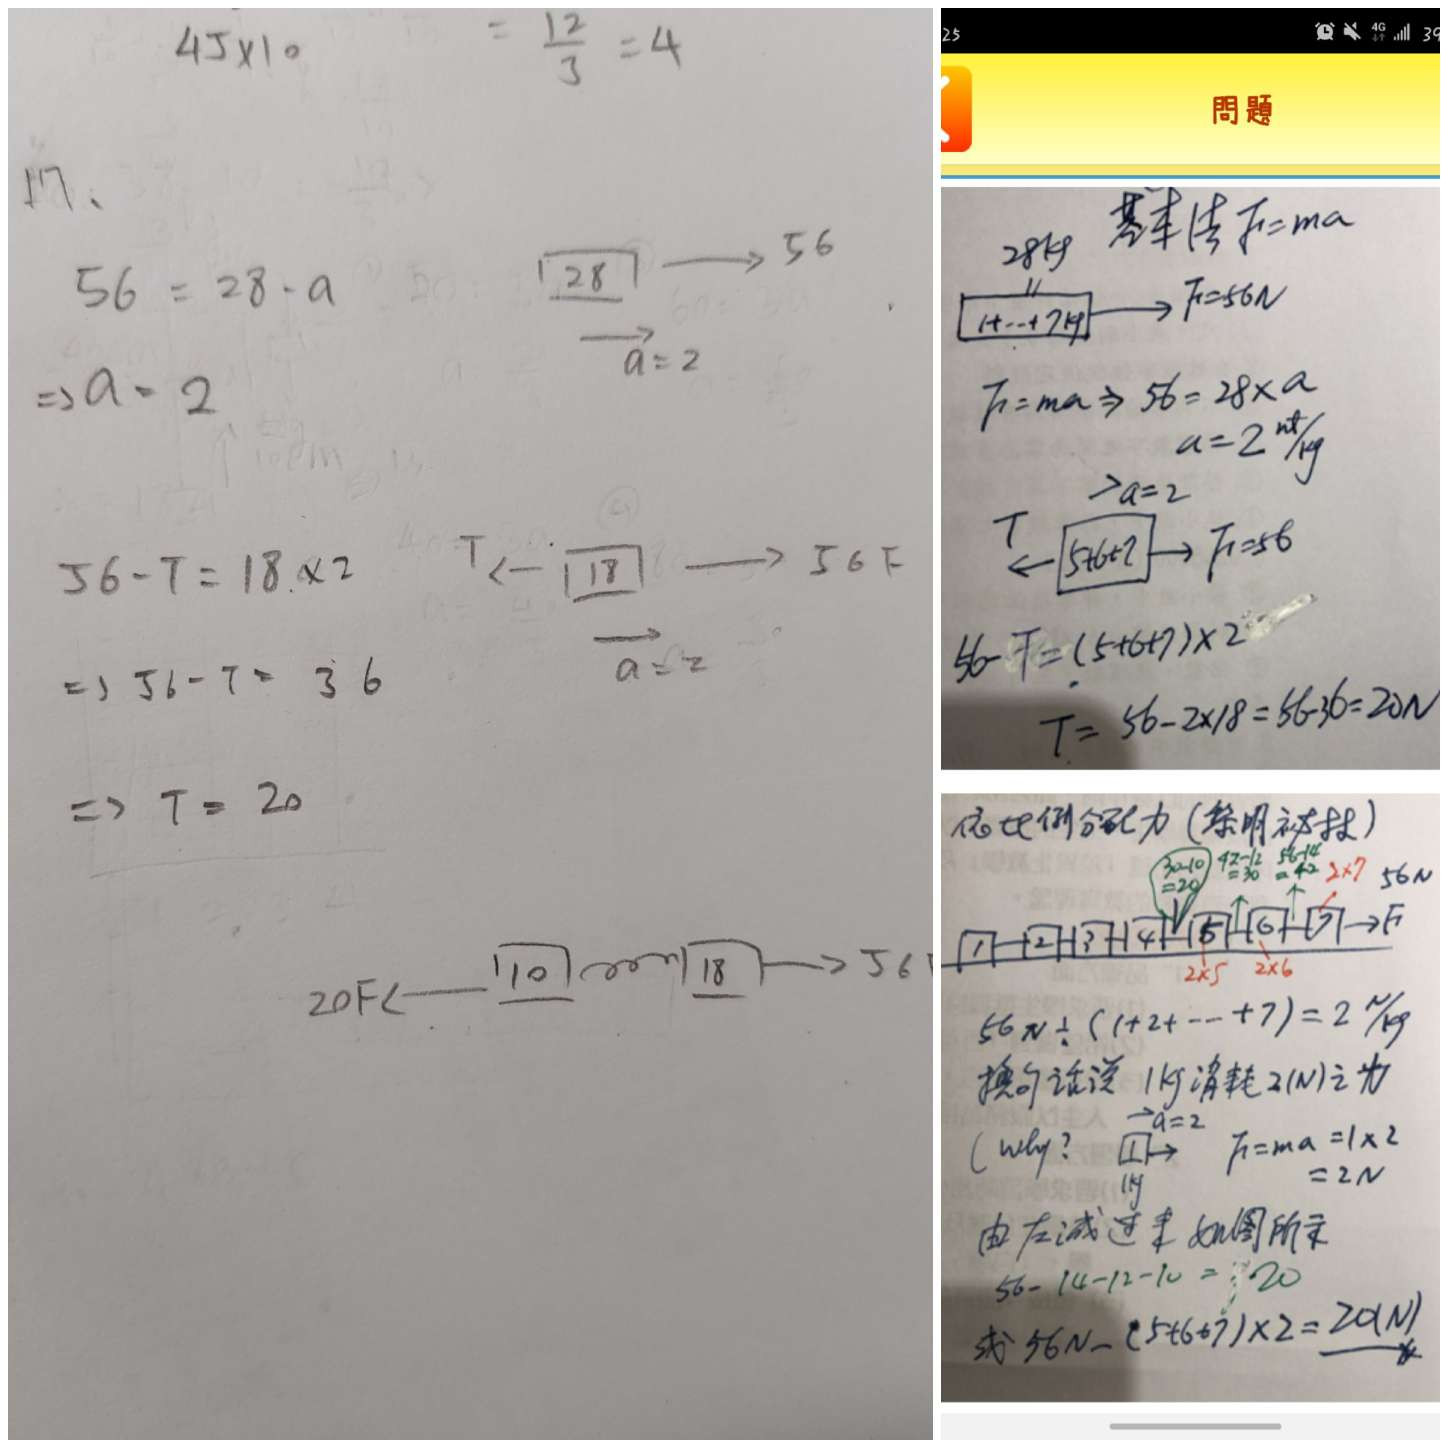 45×10
= 12/3 = 4
17、
56 = 28 · a
28 → 56
a = 2
=> a = 2
56 - T = 18 × 2
T ← 18 → 56 F
a = 2
=> 56 - T = 36
=> T = 20
20F ← 10 18 → 56
25 4G 39
問題
基本法 F=ma
28kg
1+…+7kg → F=56N
F=ma ⇒ 56=28×a
a=2 nt/kg
→a=2
T ← 5+6+7 → F=56
56-T=(5+6+7)×2
T= 56-2×18=56-36=20N
依比例分配力(
30-10 =20
42-12 =30
56-14 =42
2×7
56N
1 2 3 4 5 6 7 → F
2×5 2×6
56N÷(1+2+…+7)=2 N/kg
換句話說 1kg消耗2(N)之力
→a=2
(Why? 1 → F=ma=1×2
1kg =2N
由左減過來 如圖所示
56-14-12-10=20
或 56N-(5+6+7)×2=20(N)